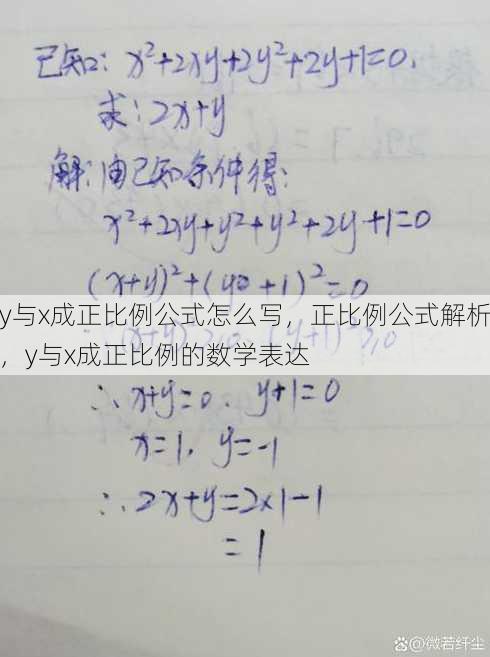 已知: x²+2xy+2y²+2y+1=0.
求: 2x+y
解: 由已知条件得:
x²+2xy+y²+y²+2y+1=0
(x+y)²+(y+1)²=0
y与x成正比例公式怎么写，正比例公式解析
，y与x成正比例的数学表达
∴ x+y=0. y+1=0
x=1, y=-1
∴ 2x+y=2×1-1
=1
@微若纤尘